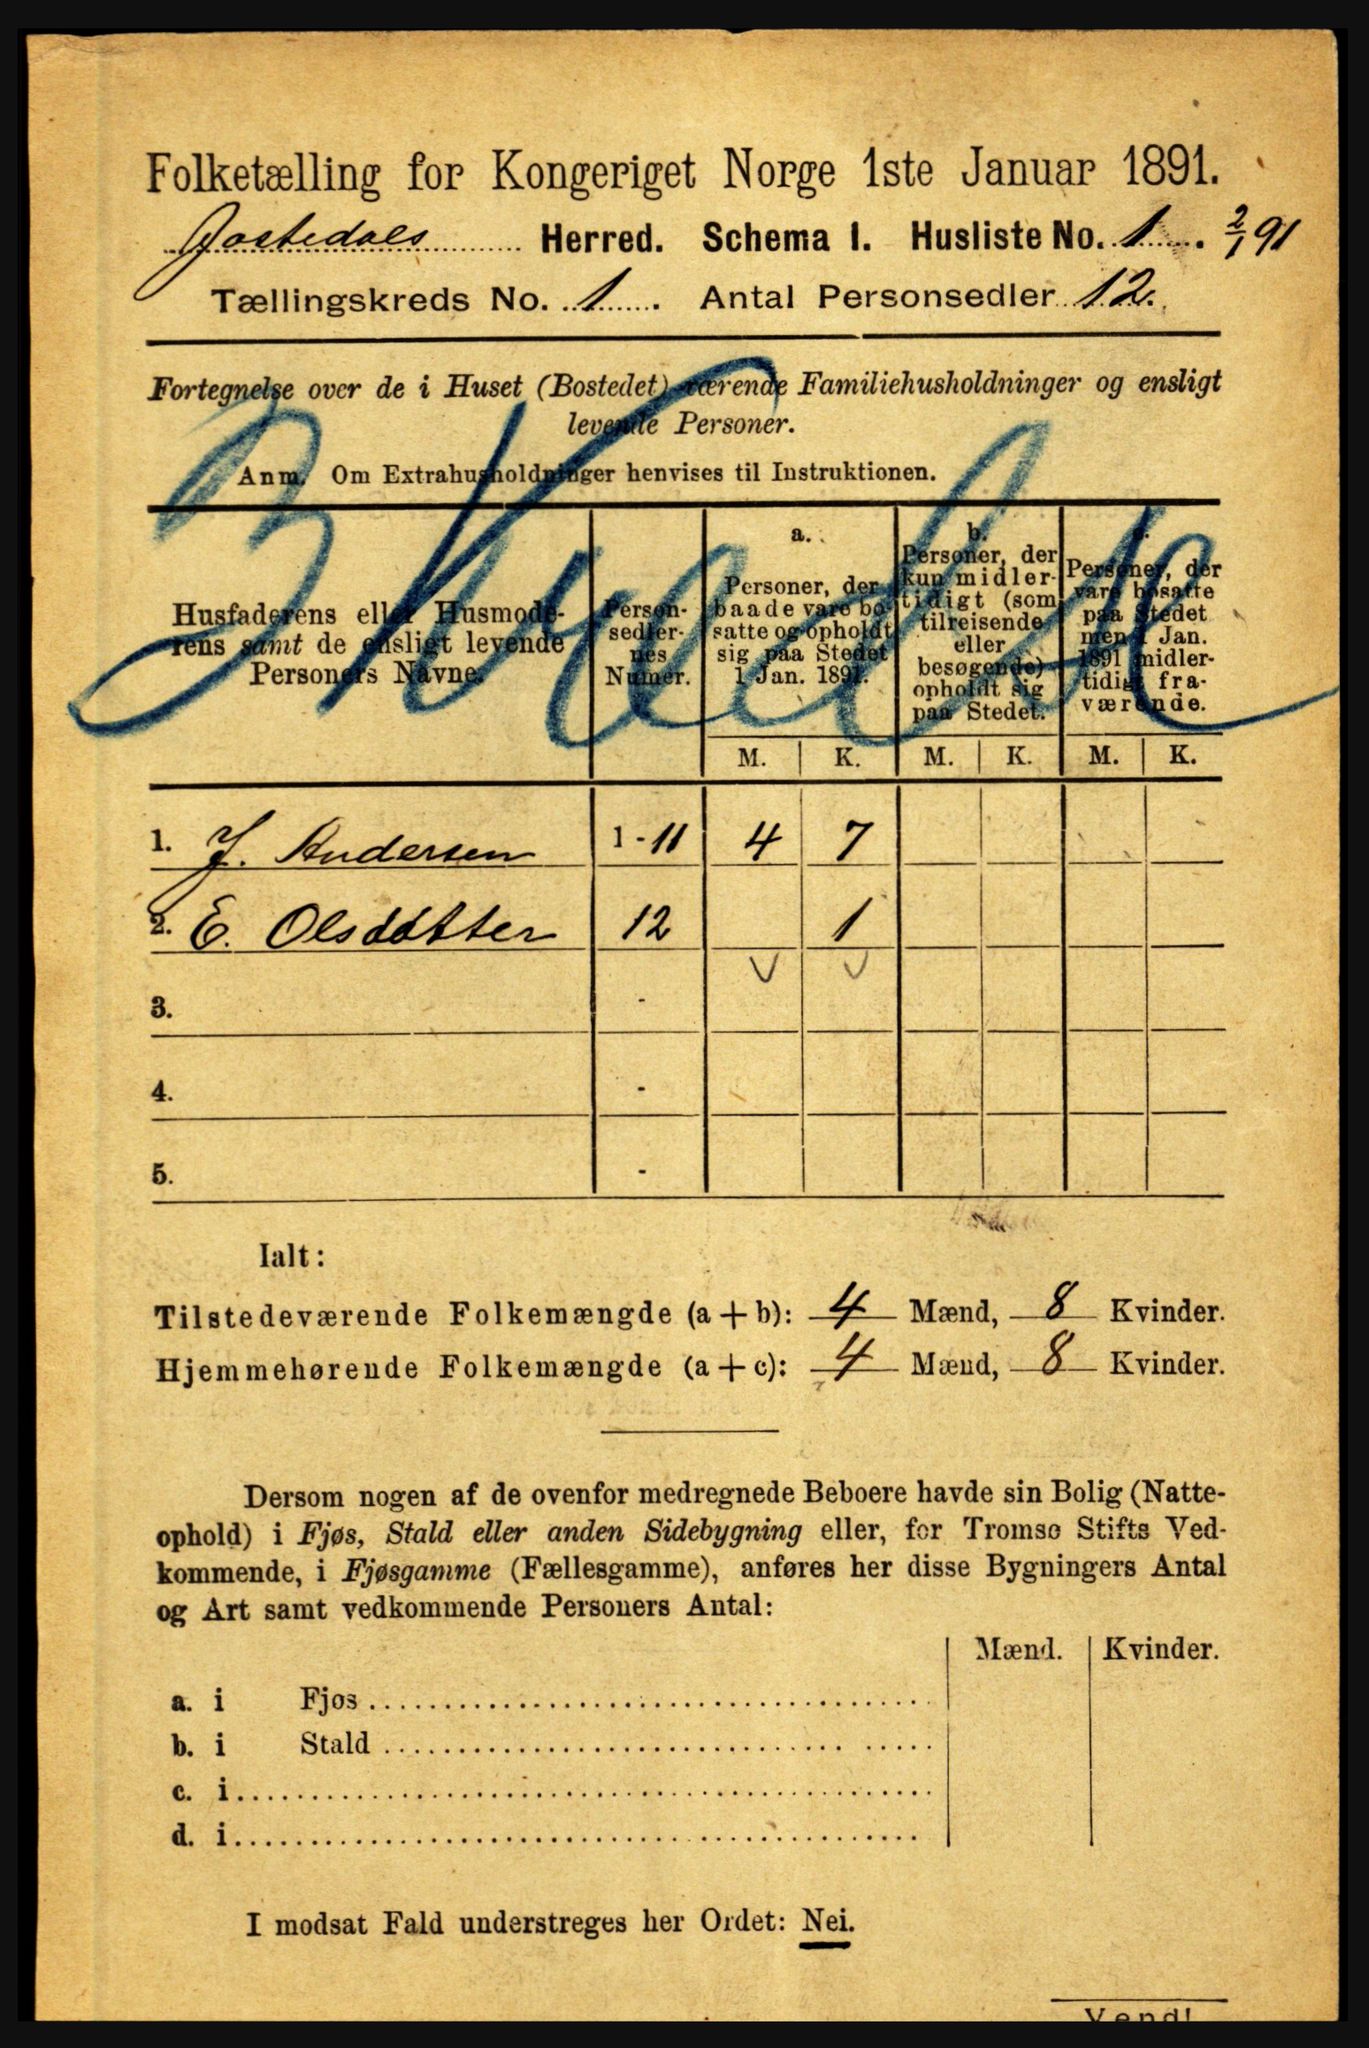 Folketælling for Kongeriget Norge 1ste Januar 1891.
Jostedals Herred. Schema I. Husliste No. 1. 2/1 91
Tællingskreds No. 1. Antal Personsedler 12.
Fortegnelse over de i Huset (Bostedet) værende Familiehusholdninger og ensligt
levende Personer.
Anm. Om Extrahusholdninger henvises til Instruktionen.
Husfaderens eller Husmode-
rens samt de ensligt levende
Personers Navne.
Person-
sedler-
nes
Numer.
a.
Personer, der
baade vare bo-
satte og opholdt
sig paa Stedet
1 Jan. 1891.
b.
Personer, der
kun midler-
tidigt (som
tilreisende
eller
besøgende)
opholdt sig
paa Stedet.
c.
Personer, der
vare bosatte
paa Stedet
men 1 Jan.
1891 midler-
tidigt fra-
værende.
M. K. M. K. M. K.
1. J. Andersen 1 - 11 4 7
2. E. Olsdotter 12 1
3. -
4. -
5. -
Ialt:
Tilstedeværende Folkemængde (a + b): 4 Mænd, 8 Kvinder.
Hjemmehørende Folkemængde (a + c): 4 Mænd, 8 Kvinder.
Dersom nogen af de ovenfor medregnede Beboere havde sin Bolig (Natte-
ophold) i Fjøs, Stald eller anden Sidebygning eller, for Tromsø Stifts Ved-
kommende, i Fjøsgamme (Fællesgamme), anføres her disse Bygningers Antal
og Art samt vedkommende Personers Antal:
Mænd. Kvinder.
a. i Fjøs
b. i Stald
c. i
d. i
I modsat Fald understreges her Ordet: Nei.
Vend!